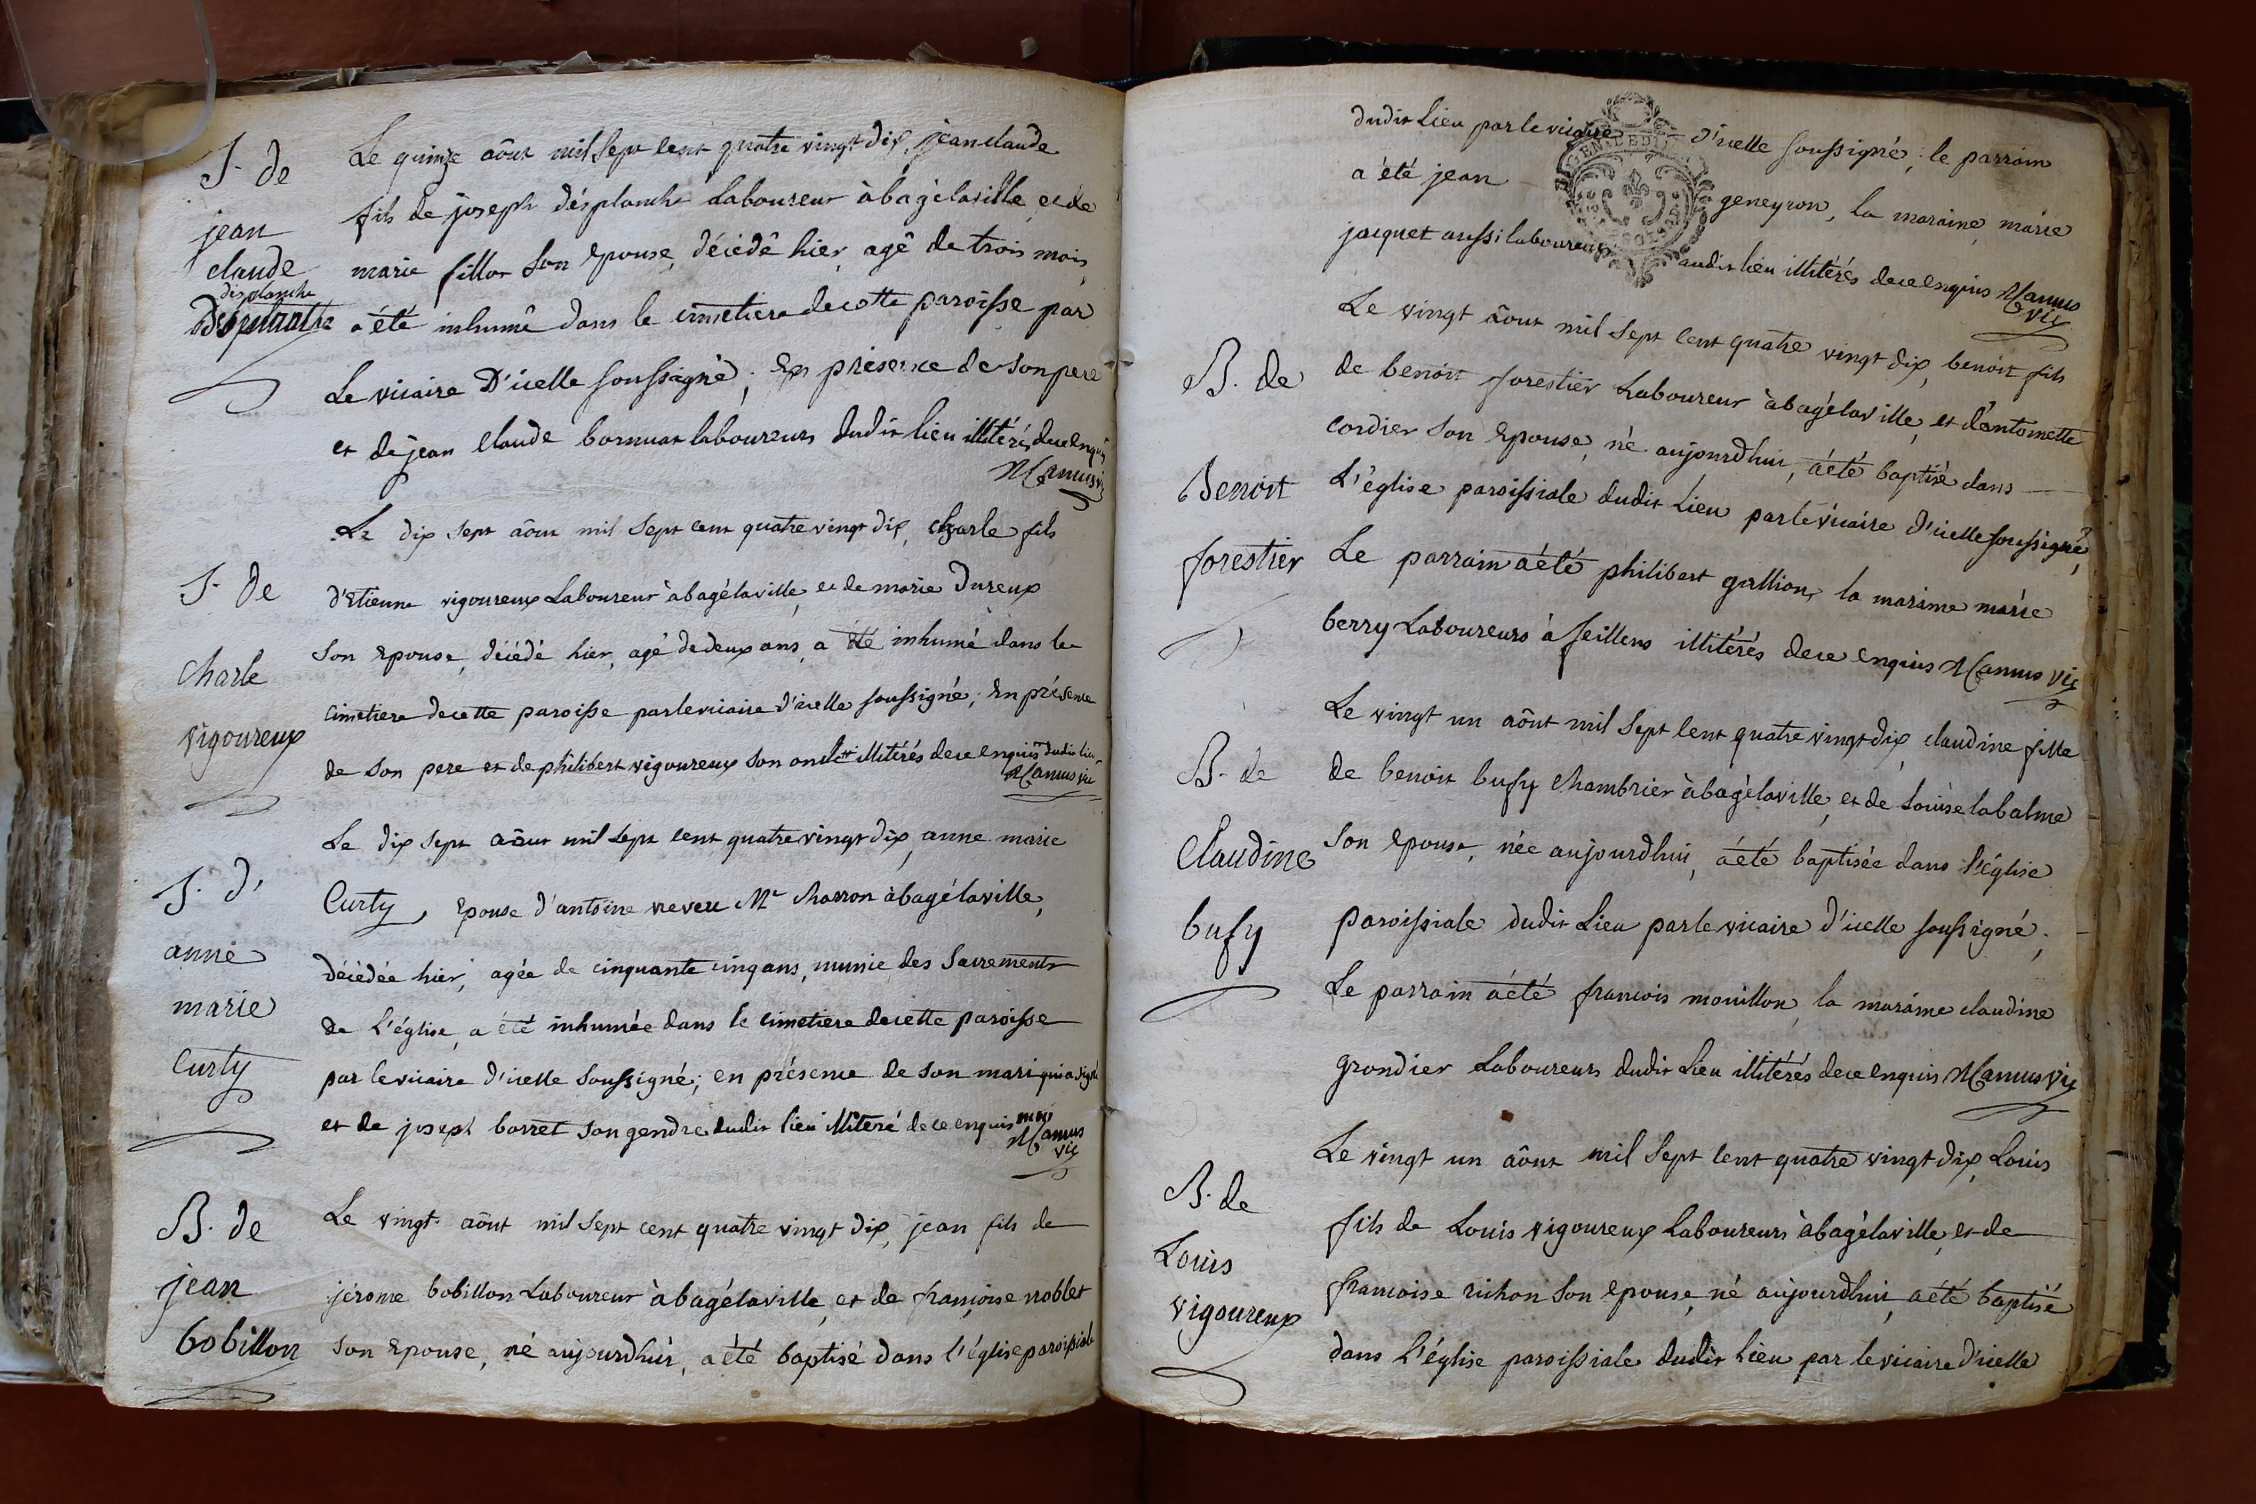 S. de
jean
claude
desplanche
Le quinze aôut mil sept cent quatre vingt dix, jean claude
fils de joseph désplanche Laboureur à bagélaville, et de
marie fillon son epouse, décédé hier, agé de trois mois,
a été inhumé dans le cimetiere de cette paroisse par
Le vicaire D'icelle soussigné; En présence de son pere
et de jean claude bornuat laboureurs dudit lieu illitérés de ce enquis
M Camus vic
S. De
Charle
vigoureux
Le dix sept aôut mil sept cent quatre vingt dix, charle fils
d'Etienne vigoureux Laboureur à bagélaville, et de marie Dureux
son epouse, décédé hier, agé de deux ans, a été inhumé dans le
cimetiere de cette paroisse par le vicaire d'icelle soussigné; En présence
de son pere et de philibert vigoureux son oncle illitérés de ce enquis dudit lieu
M Camus vic
S. d'
anne
marie
Curty
Le dix sept aôut mil sept cent quatre vingt dix, anne marie
Curty, epouse d'antoine neveu Me Charron à bagélaville,
décédée hier, agée de cinquante cinq ans, munie des Sacrements
de L'église, a été inhumée dans le cimetiere de cette paroisse
par le vicaire d'icelle soussigné; en présence de son mari qui a signé
et de joseph borret son gendre dudit lieu illitéré de ce enquis
M Camus
vic
B. de
jean
bobillon
Le vingt aôut mil sept cent quatre vingt dix, jean fils de
jérome bobillon Laboureur à bagélaville, et de françoise noblet
son epouse, né aujourdhui, a été baptisé dans l'église paroissiale
dudit Lieu par le vicaire d'icelle soussigné; le parrain
a été jean geneyron, la maraine marie
jacquet aussi laboureurs audit lieu illitérés de ce enquis M Camus
vic
B. de
Benoit
forestier
Le vingt aôut mil sept cent quatre vingt dix, benoit fils
de benoit forestier Laboureur à bagélaville, et d'antoinette
cordier son epouse, né aujourdhui, a été baptisé dans
L'église paroissiale dudit Lieu par le vicaire d'icelle soussigné;
Le parrain a été philibert gallion, la maraine marie
berry Laboureurs à feillens illitérés de ce enquis M Camus vic
B. de
Claudine
bufy
Le vingt un aôut mil sept cent quatre vingt dix, claudine fille
de benoit bufy chambrier à bagélaville, et de Louise labalme
son epouse, née aujourdhui, a été baptisée dans l'église
paroissiale dudit Lieu par le vicaire d'icelle soussigné;
Le parrain a été francois mouillon, la maraine claudine
grondier Laboureurs dudit Lieu illitérés de ce enquis M Camus vic
B. de
Louis
vigoureux
Le vingt un aôut mil sept cent quatre vingt dix, Louis
fils de Louis vigoureux Laboureurs à bagélaville, et de
francoise richon son epouse, né aujourdhui, a été baptisé
dans L'église paroissiale dudit Lieu par le vicaire d'icelle